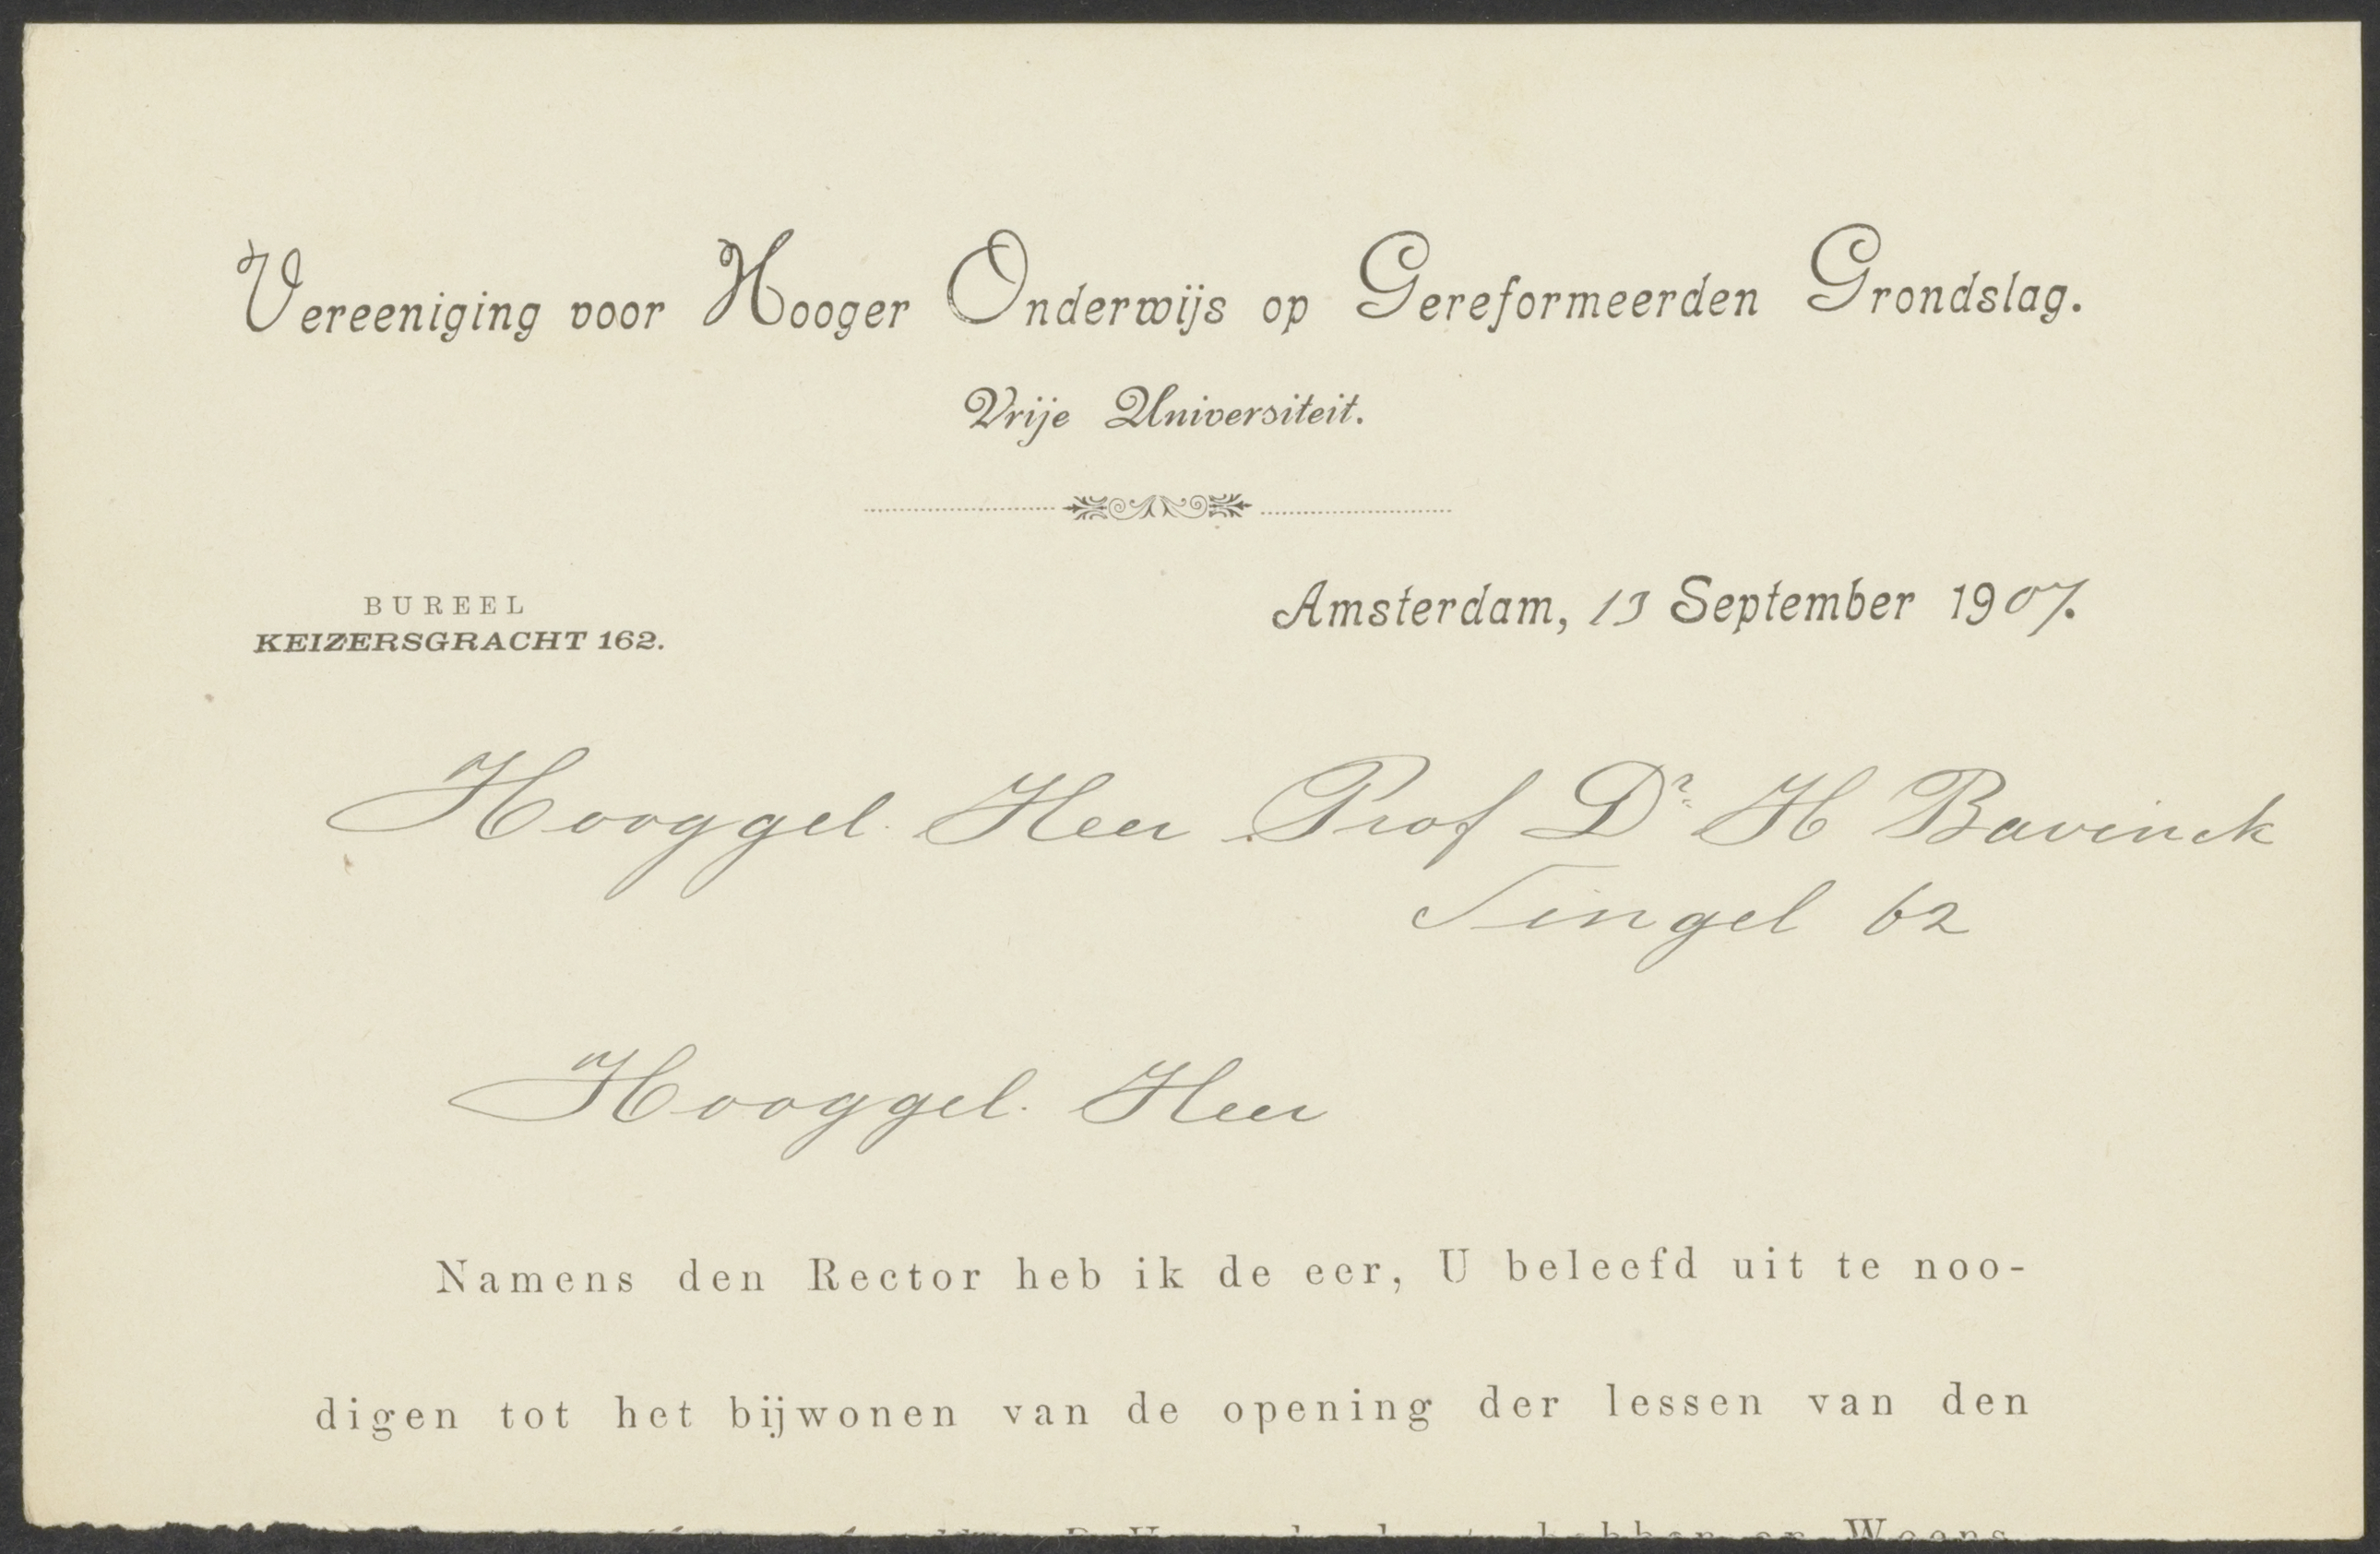 Vereeniging voor Hooger Onderwijs op Gereformeerden Grondslag.
Vrije Universiteit.
BUREEL
KEIZERSGRACHT 162.
Amsterdam, 13 September 1907.
Hooggel. Heer Prof Dr. H Bavinck
Singel 62
Hooggel. Heer
Namens den Rector heb ik de eer, U beleefd uit te noo-
digen tot het bijwonen van de opening der lessen van den